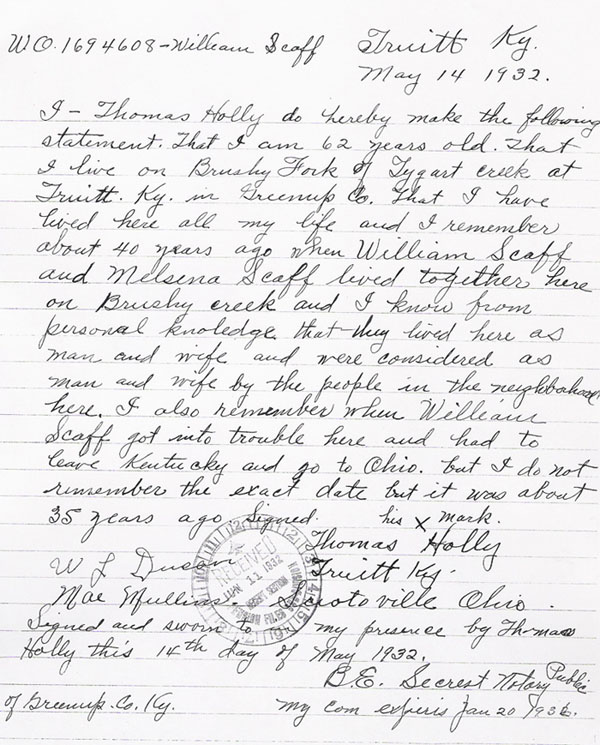 W.O. 1694608 - William Scaff
Truitt Ky.
May 14 1932.
I - Thomas Holly do hereby make the following
statement. That I am 62 years old. That
I live on Brushy Fork of Tygart creek at
Truitt. Ky. in Greenup Co. That I have
lived here all my life and I remember
about 40 years ago when William Scaff
and Melsena Scaff lived together here
on Brushy creek and I know from
personal knoledge that they lived here as
man and wife and were considered as
man and wife by the people in the neighborhood
here. I also remember when William
Scaff got into trouble here and had to
leave Kentucky and go to Ohio. but I do not
remember the exact date but it was about
35 years ago. Signed. his X mark.
Thomas Holly
W L Truitt Ky.
RECEIVED
JUN 11 1932
Mae Mullins. Sciotoville Ohio.
Signed and sworn to my presence by Thomas
Holly this 14th day of May 1932.
B.E. Secrest Notary Public
of Greenup. Co. Ky. my com expiris Jan 20 1936.